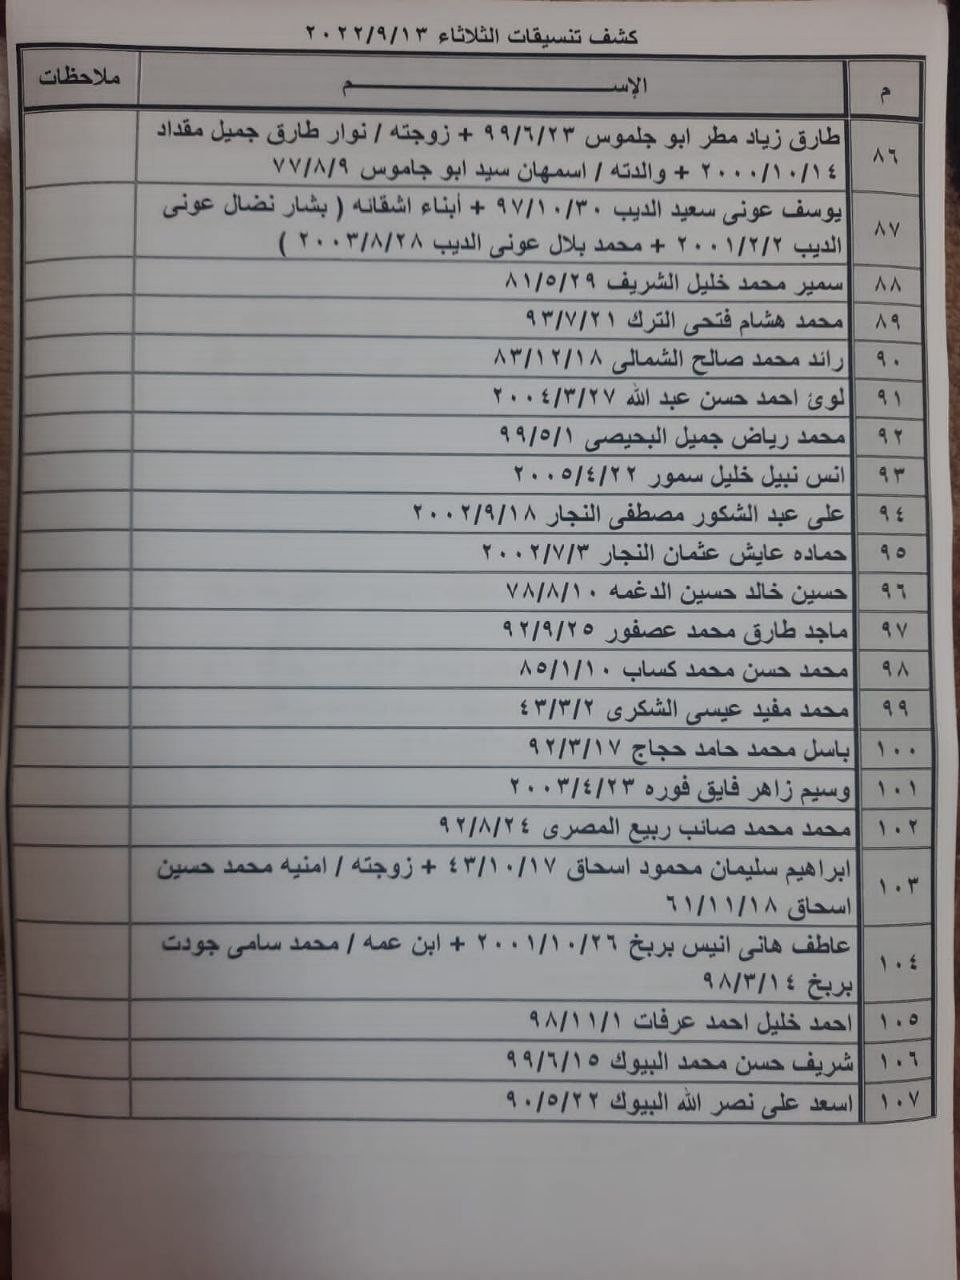 كشف تنسيقات الثلاثاء ٢٠٢٢/٩/١٣
م الإســـــــــــــم ملاحظات
٨٦ طارق زياد مطر ابو جلموس ٩٩/٦/٢٣ + زوجته / نوار طارق جميل مقداد
٢٠٠٠/١٠/١٤ + والدته / اسمهان سيد ابو جاموس ٧٧/٨/٩
٨٧ يوسف عونى سعيد الديب ٩٧/١٠/٣٠ + أبناء اشقائه ( بشار نضال عونى
الديب ٢٠٠١/٢/٢ + محمد بلال عونى الديب ٢٠٠٣/٨/٢٨ )
٨٨ سمير محمد خليل الشريف ٨١/٥/٢٩
٨٩ محمد هشام فتحى الترك ٩٣/٧/٢١
٩٠ رائد محمد صالح الشمالى ٨٣/١٢/١٨
٩١ لوئ احمد حسن عبد الله ٢٠٠٤/٣/٢٧
٩٢ محمد رياض جميل البحيصى ٩٩/٥/١
٩٣ انس نبيل خليل سمور ٢٠٠٥/٤/٢٢
٩٤ على عبد الشكور مصطفى النجار ٢٠٠٢/٩/١٨
٩٥ حماده عايش عثمان النجار ٢٠٠٢/٧/٣
٩٦ حسين خالد حسين الدغمه ٧٨/٨/١٠
٩٧ ماجد طارق محمد عصفور ٩٢/٩/٢٥
٩٨ محمد حسن محمد كساب ٨٥/١/١٠
٩٩ محمد مفيد عيسى الشكرى ٤٣/٣/٢
١٠٠ باسل محمد حامد حجاج ٩٢/٣/١٧
١٠١ وسيم زاهر فايق فوره ٢٠٠٣/٤/٢٣
١٠٢ محمد محمد صائب ربيع المصرى ٩٢/٨/٢٤
١٠٣ ابراهيم سليمان محمود اسحاق ٤٣/١٠/١٧ + زوجته / امنيه محمد حسين
اسحاق ٦١/١١/١٨
١٠٤ عاطف هانى انيس بربخ ٢٠٠١/١٠/٢٦ + ابن عمه / محمد سامى جودت
بربخ ٩٨/٣/١٤
١٠٥ احمد خليل احمد عرفات ٩٨/١١/١
١٠٦ شريف حسن محمد البيوك ٩٩/٦/١٥
١٠٧ اسعد على نصر الله البيوك ٩٠/٥/٢٢